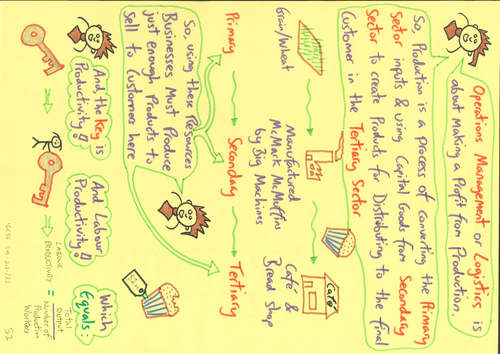 Operations Management or Logistics is
about making a Profit from Production.
So, Production is a process of converting the Primary
Sector inputs & using Capital Goods from Secondary
Sector to create Products for Distributing to the final
Customer in the Tertiary Sector
Grain/Wheat
Manufactured
McMark McMuffins
by Big Machines
Café
Café &
Bread Shop
Primary
Secondary
Tertiary
So, using these Resources
Businesses Must Produce
just enough Products to
Sell to Customer here
And, the Key is
Productivity!
And Labour
Productivity!!
Which
Equals:
LABOUR
PRODUCTIVITY
=
Total
Output
Number of
Production
Workers
52